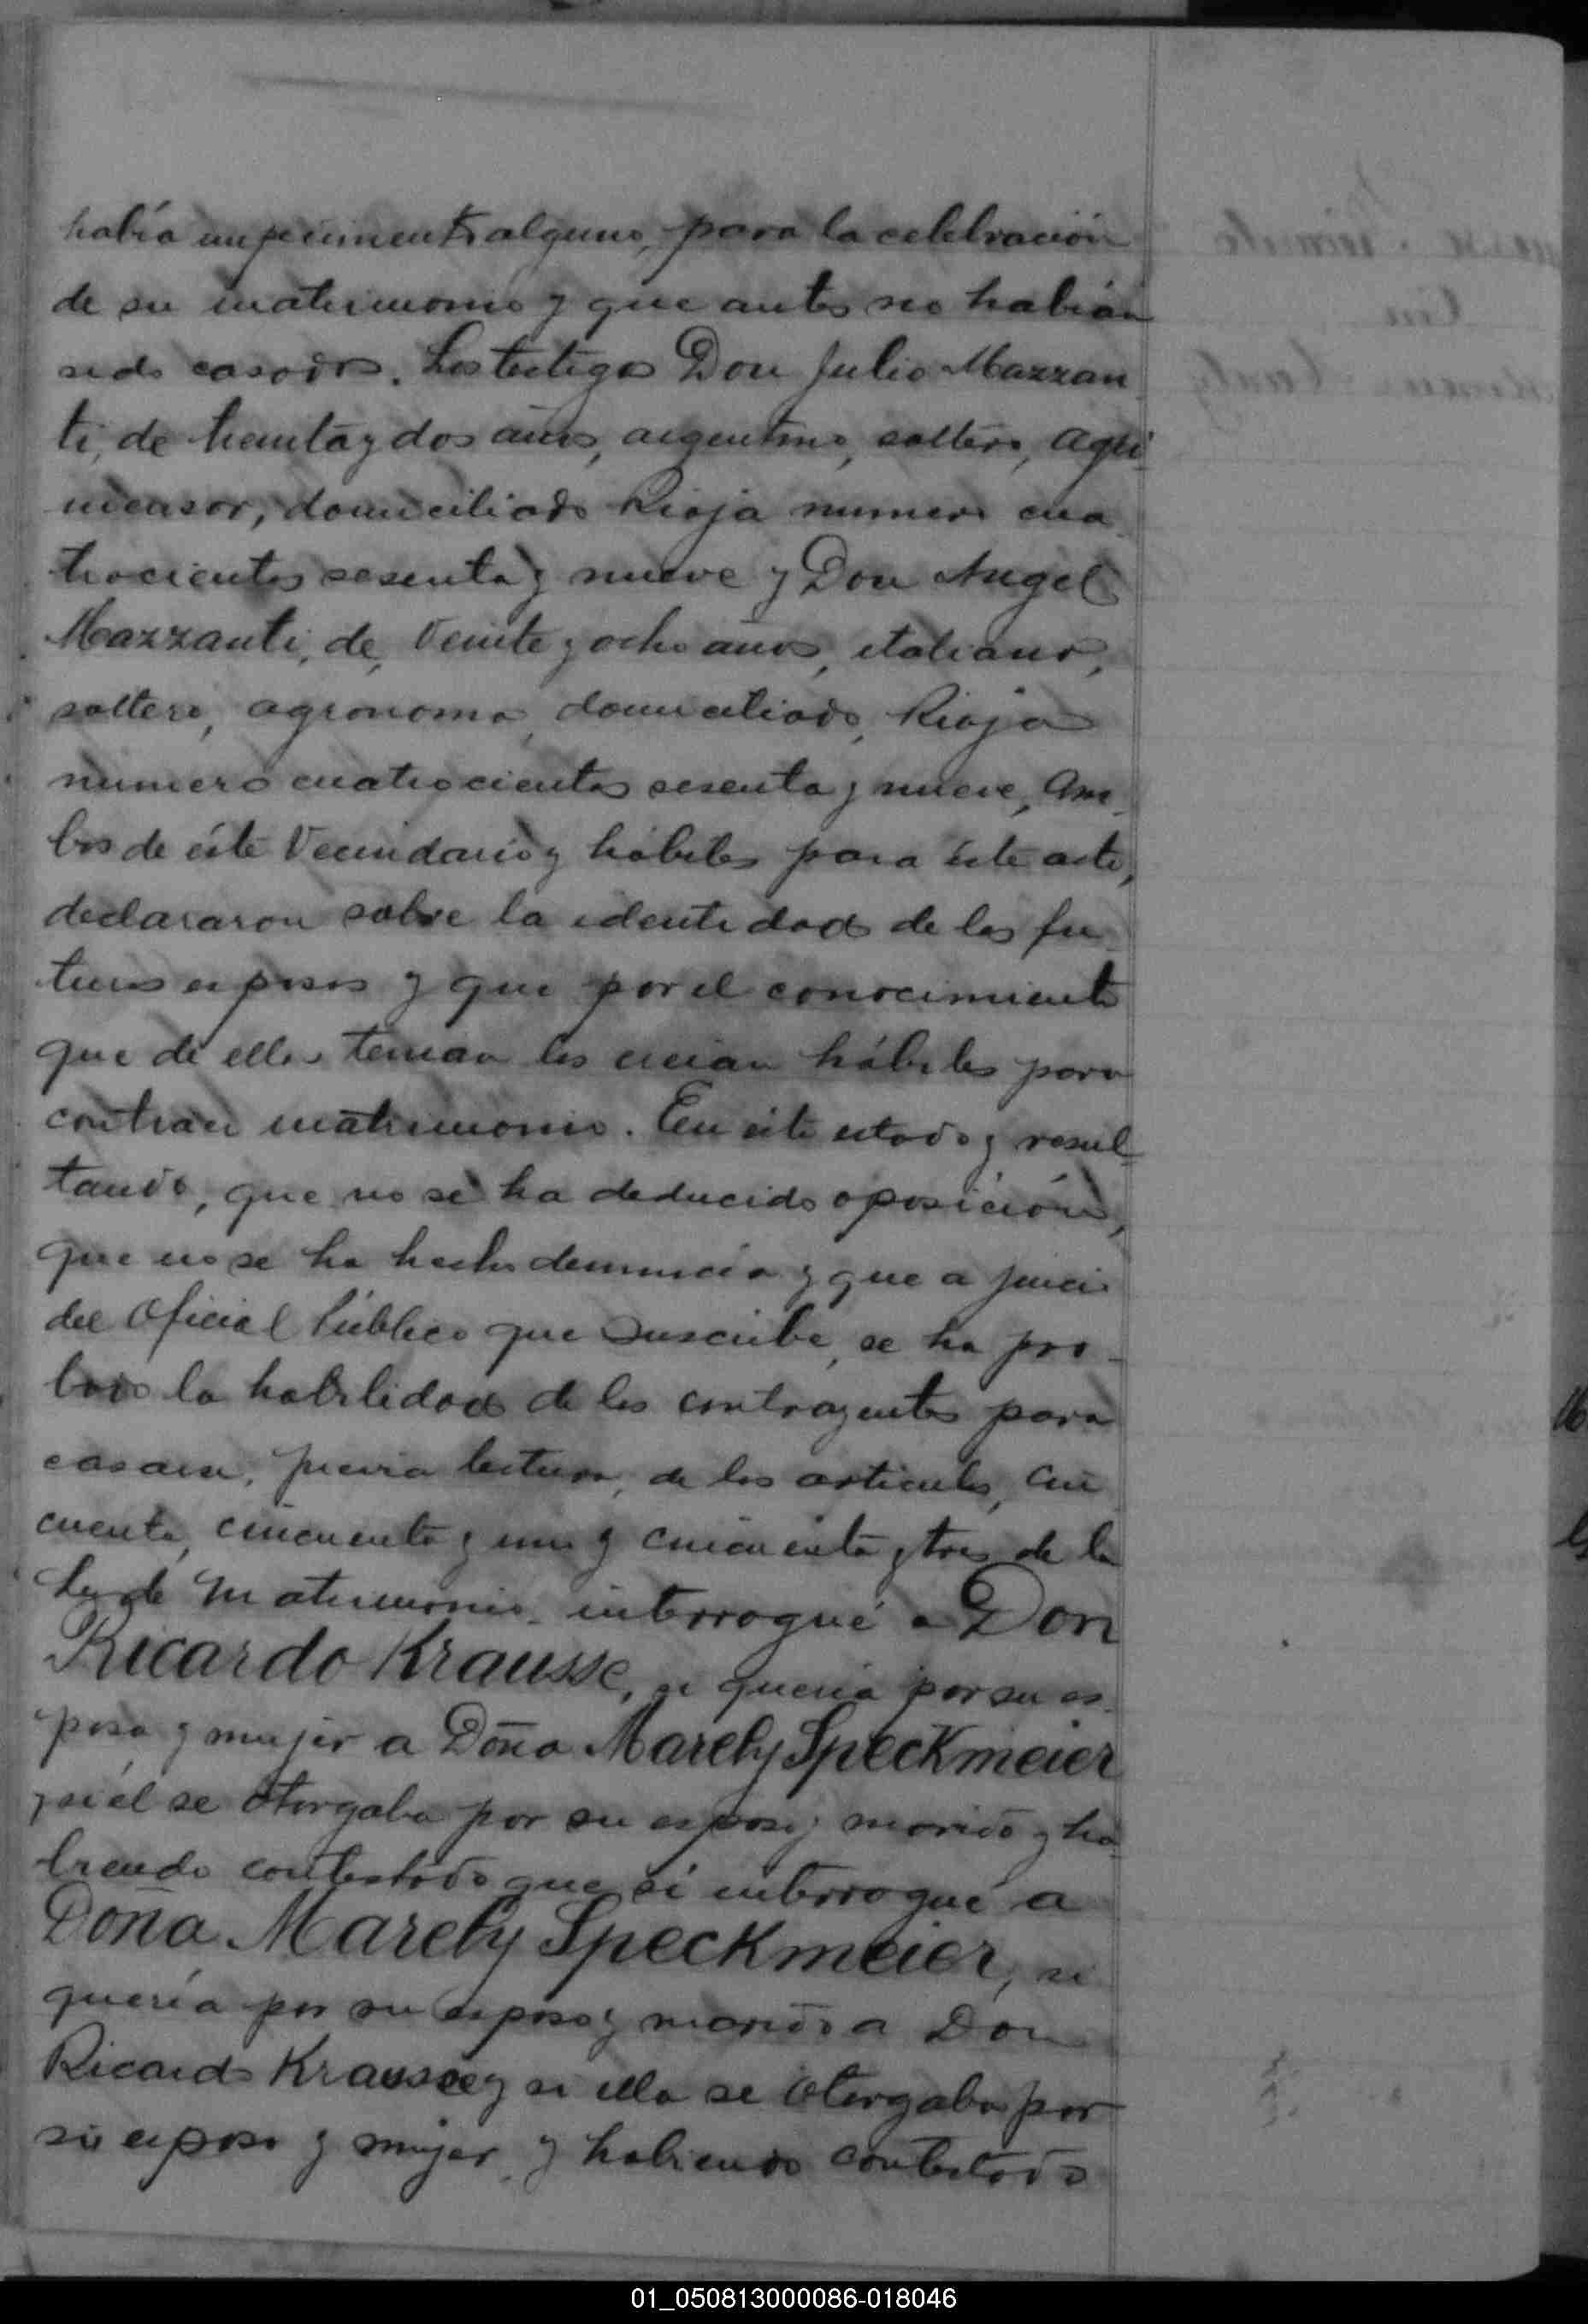 había impedimento alguno, para la celebración
de su matrimonio y que antes no habían
sido casados. Los testigos Don Julio Mazzan
ti, de treinta y dos años, argentino, soltero, agri
mensor, domiciliado Rioja numero cua
trocientos sesenta y nueve y Don Angel
Mazzanti, de, veinte y ocho años, italiano,
soltero, agronomo, domiciliado, Rioja
numero cuatrocientos sesenta y nueve, am_
bos de éste Vecindario y hábiles para éste acto,
declararon sobre la identidad de los fu_
turos esposos y que por el conocimiento
que de ellos tenian los creian hábiles para
contraer matrimonio. En éste estado y resul_
tando, que no se ha deducido oposición,
que no se ha hecho denuncia y que a juicio
del Oficial Público que suscribe, se ha pro_
bado la habilidad de los contrayentes para
casarse, previa lectura, de los articulos, cin
cuenta, cincuenta y uno y cincuenta y tres de la
Ley de Matrimonio, interrogué a Don
Ricardo Krausse, si queria por su es_
posa y mujer a Doña Marely Speckmeier
y si él se otorgaba por su esposo y marido y ha_
biendo contestado que si interrogué a
Doña Marely Speckmeier, si
quería por su esposo y marido a Don
Ricardo Krausse y si ella se otorgaba por
su esposa y mujer y habiendo contestado
01_050813000086-018046